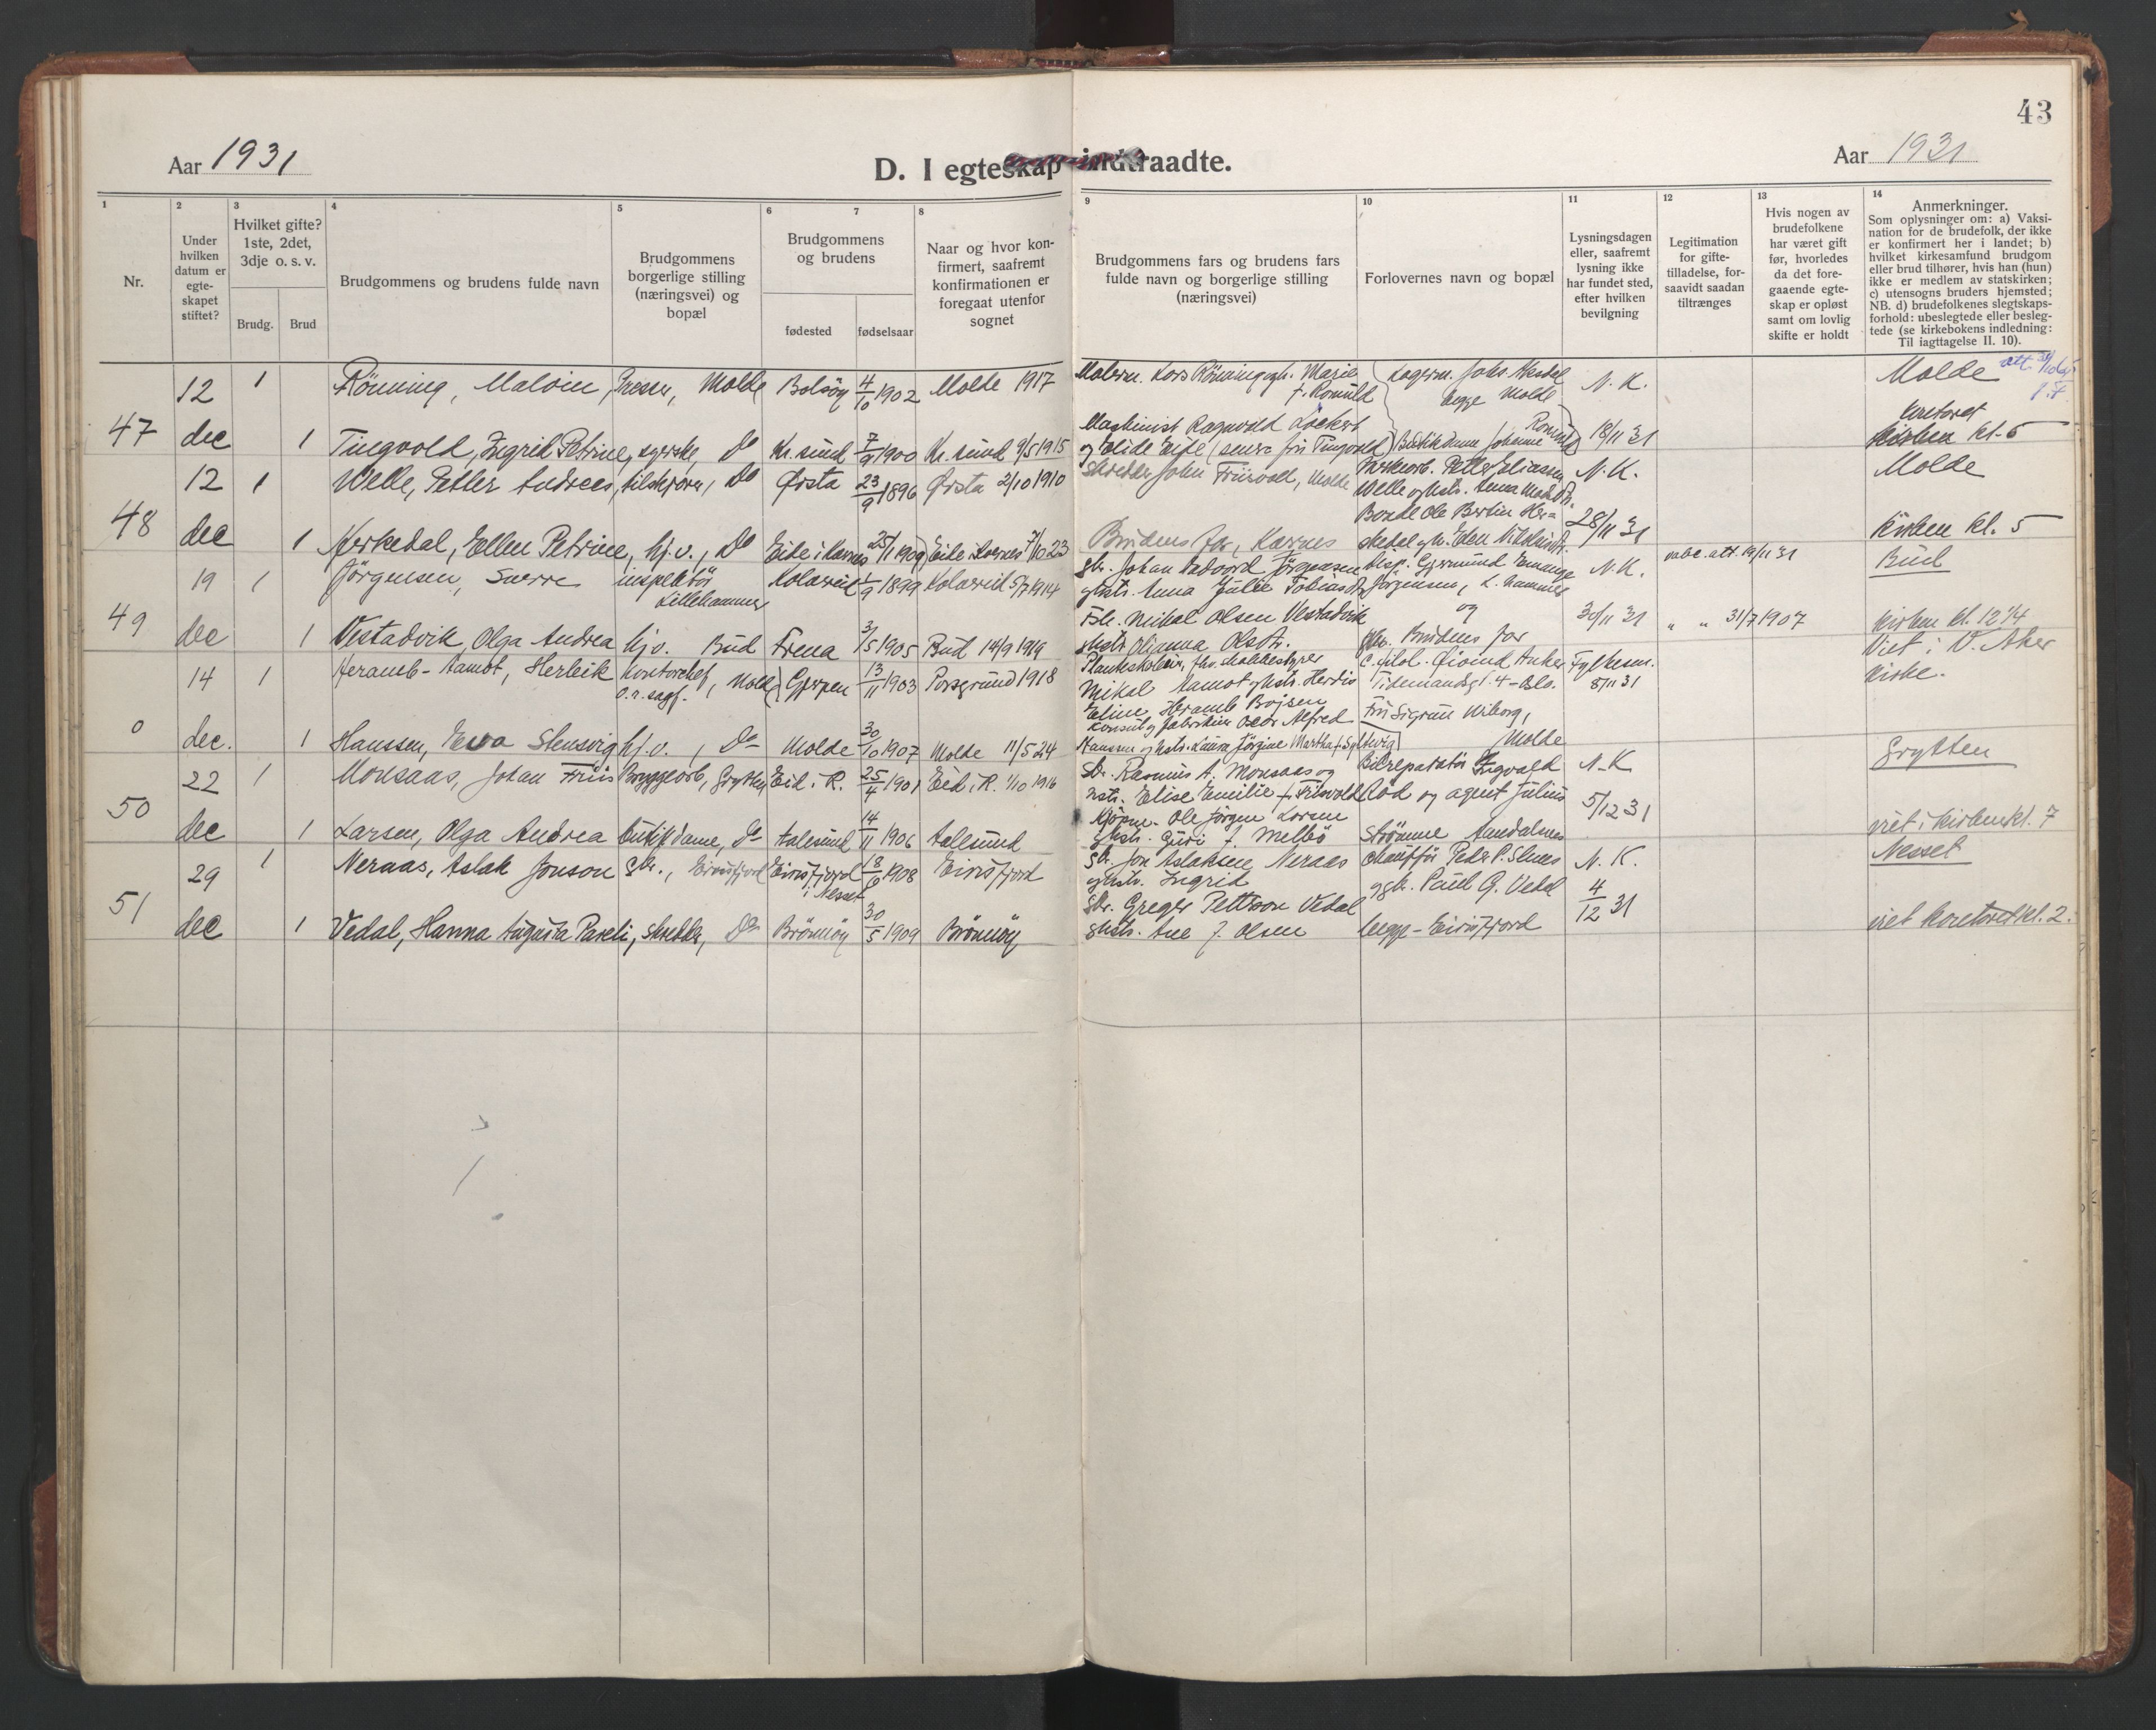 43
Aar 1931
D. I egteskap indtraadte.
Aar 1931
1
2
3
4
5
6
7
8
9
10
11
12
13
14
Nr.
Under hvilken datum er egte-skapet stiftet?
Hvilket gifte? 1ste, 2det, 3dje o. s. v.
Brudg.
Brud
Brudgommens og brudens fulde navn
Brudgommens borgerlige stilling (næringsvei) og bopæl
Brudgommens og brudens
fødested
fødselsaar
Naar og hvor kon-firmert, saafremt konfirmationen er foregaat utenfor sognet
Brudgommens fars og brudens fars fulde navn og borgerlige stilling (næringsvei)
Forlovernes navn og bopæl
Lysningsdagen eller, saafremt lysning ikke har fundet sted, efter hvilken bevilgning
Legitimation for gifte-tilladelse, for-saavidt saadan tiltrænges
Hvis nogen av brudefolkene har været gift før, hvorledes da det fore-gaaende egte-skap er opløst samt om lovlig skifte er holdt
Anmerkninger.
Som oplysninger om: a) Vaksi-nation for de brudefolk, der ikke er konfirmert her i landet; b) hvilket kirkesamfund brudgom eller brud tilhører, hvis han (hun) ikke er medlem av statskirken; c) utensogns bruders hjemsted; NB. d) brudefolkenes slegtskaps-forhold: ubeslegtede eller besleg-tede (se kirkebokens indledning: Til iagttagelse II. 10).
12 1 Rönning, Malvin, Molde Bolsöy 4/10 1902 Molde 1917
Malerm. Lars Rönning gh. Marie f. Romuld
Lagerm. Johs. begge Molde
N. K.
Molde
47 dec 1 Tingvold, Ingrid Petrine, syerske, Do Kr.sund 7/9 1900 Kr.sund 9/5 1915
Maskinist Ragnvald Lockert
18/11 31
kontoret
kirken kl. 5
12 1 Welle, Petter Andreas, Do Ørsta 23/9 1896 Ørsta 2/10 1910
Skredder John Friisvold, Molde
N. K.
Molde
48 dec 1 Herskedal, Ellen Petrine, hj.v., Do
Brudens far, Kornes
Bonde Ole Bertin Her=skedal
28/11 31
kirken kl. 5
19 1 Jörgensen, Sverre inspektör Lillehammer Kolvereid 1/9 1899 Kolvereid 5/7 1914
gbr. Johan Edvard Jörgensen
Jörgensen, L. hammer
N. K.
vabc. att. 19/11 31
Bud
49 dec 1 Vestadvik, Olga Andrea hj.v. Bud Fræna 3/5 1905 Bud 14/9 1919
Mikal Olsen Vestadvik
og Brudens far
30/11 31
" " 31/7 1907
kirken kl. 12 1/4
14 1 Heramb-Aamot, Herleik Kontorchef, Molde Gjerpen 13/11 1903 Porsgrund 1918
Mikal Aamot
Eline Heramb Bojsen
C. philol. Øivind Anker
Tidemandsgt. 4 - Oslo.
Fylkesm. 8/11 31
Viet i V. Aker kirke.
0 dec. 1 Hanssen, Ewa Slensvig hj.v., Do Molde 30/10 1907 Molde 11/5 24
Konsul og fabrikeier Oscar Alfred
Fru Sigrun Wiborg, Molde
22 1 Monsaas, Johan Friis Bryggearb., Grytten Eid i R. 25/4 1901 Eid i R. 1/10 1916
Rasmus A. Monsaas og
Elise Emilie f. Friisvold
Bilreparatör Ingvald Röd og agent Julius
N. K
Grytten
50 dec 1 Larsen, Olga Andrea butikdame, Do Aalesund 14/11 1906 Aalesund
Kjöpm. Ole Jörgen Larsen
ghstr. Guri f. Melbö
Strömme Aandalsnes
5/12 31
viet i kirken kl. 7
29 1 Neraas, Aslak Jonson Gbr., Eirisfjord Eirisfjord i Nesset 18/6 1908 Eirisfjord
Gbr. Jon Aslaksen Neraas
og hstr. Ingrid
og gbr. Paul G. Vedal
N. K.
Nesset
51 dec 1 Vedal, Hanna Augusta Pareli, Do Brönnöy 30/5 1909 Brönnöy
Gbr. Greger Pettersen Vedal
ghstr. Ane f. Olsen
begge - Eirisfjord
4/12 31
viet kontoret kl. 2.